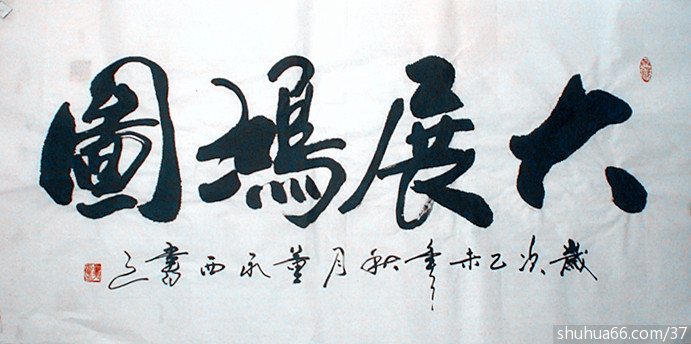 大展鴻圖
歲次乙未年秋月董永西書
shuhua66.com/37